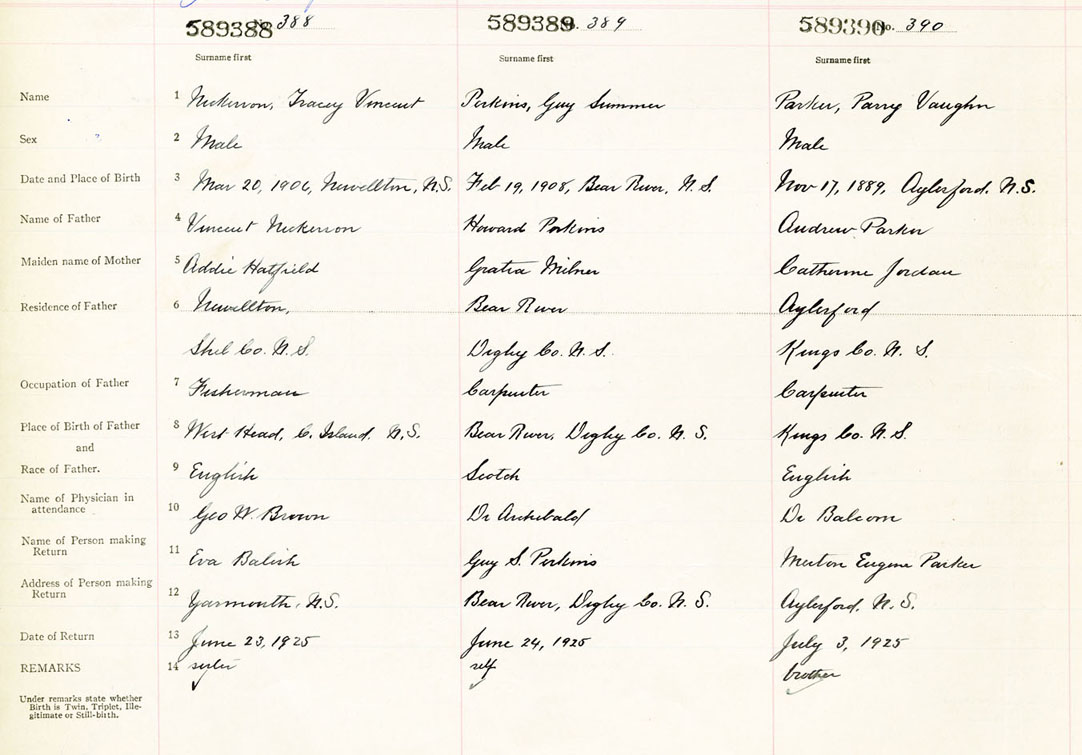 589388 No. 388 589389 No. 389 589390 No. 390
Surname first Surname first Surname first
Name 1 Nickerson, Tracey Vincent Perkins, Guy Summer Parker, Parry Vaughn
Sex 2 Male Male Male
Date and Place of Birth 3 Mar 20, 1906, Newellton, N.S. Feb 19, 1908, Bear River, N.S. Nov 17, 1889, Aylesford, N.S.
Name of Father 4 Vincent Nickerson Howard Perkins Andrew Parker
Maiden name of Mother 5 Addie Hatfield Gratia Milner Catherine Jordan
Residence of Father 6 Newellton, Bear River Aylesford
Shel Co. N.S. Digby Co. N.S. Kings Co. N.S.
Occupation of Father 7 Fisherman Carpenter Carpenter
Place of Birth of Father 8 West Head, C. Island. N.S. Bear River, Digby Co. N.S. Kings Co. N.S.
and
Race of Father. 9 English Scotch English
Name of Physician in
attendance 10 Geo W. Brown Dr Archibald Dr Balcom
Name of Person making
Return 11 Eva Guy S. Perkins Merton Eugene Parker
Address of Person making
Return 12 Yarmouth, N.S. Bear River, Digby Co. N.S. Aylesford, N.S.
Date of Return 13 June 23, 1925 June 24, 1925 July 3, 1925
REMARKS 14 sister self brother
Under remarks state whether
Birth is Twin, Triplet, Ille-
gitimate or Still-birth.